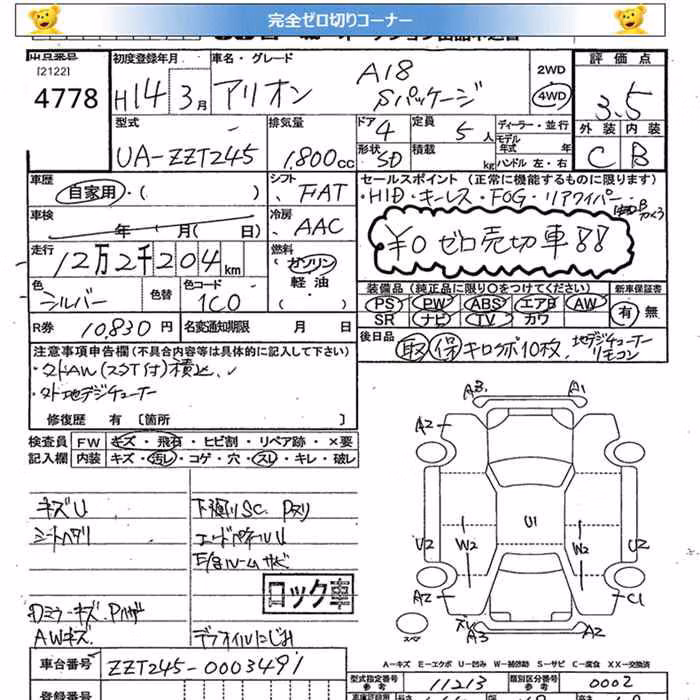 完全ゼロ切りコーナー
出品番号
[2122]
4778
初度登録年月
H14年 3月
車名・グレード
アリオン A18 Sパッケージ
2WD
4WD
評価点
3.5
外装 内装
C B
型式
UA-ZZT245
排気量
1,800cc
ドア 4
形状 5D
定員 5人
積載 kg
ディーラー・並行
モデル年式 年
ハンドル 左・右
車歴
自家用・( )
シフト
FAT
冷房
AAC
車検
年 月( 日)
走行
12万2千204km
燃料
ガソリン
軽油
・( )
色
シルバー
色替
色コード
1C0
R券 10,830円
名変通知期限 月 日
セールスポイント (正常に機能するものに限ります)
・HID・キーレス・FOG・リアワイパー
¥0 ゼロ売切車!!
装備品(純正品に限り○をつけてください)
PS PW ABS エアB AW
SR ナビ TV カワ
新車保証書
有 無
後日品
取 保 キロクボ10枚、地デジチューナーリモコン
注意事項申告欄(不具合内容等は具体的に記入して下さい)
・外AW(スタT付)積込
・外地デジチューナー
修復歴 有 〔箇所 〕
検査員記入欄
FW キズ・飛石・ヒビ割・リペア跡・×要
内装 キズ・汚レ・コゲ・穴・スレ・キレ・破レ
キズU
シートヘタリ
AWキズ
下廻りSC
エンドパネルU
ロック車
デフオイルにじみ
A3 A1
A2
U1
U2 W2 W2 U2
A2 C1
A3 A2
A-キズ E-エクボ U-凹み W-補修跡 S-サビ C-腐食 XX-交換済
車台番号 ZZT245-0003491
型式指定番号 参考 11213
類別区分番号 参考 0002
登録番号